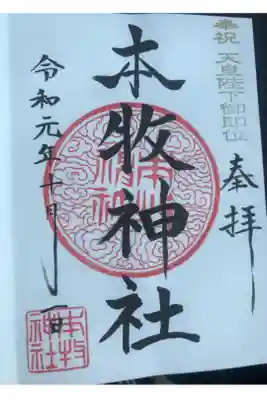 奉祝 天皇陛下御即位
奉拝
本牧神社
令和元年十月
本牧
神社